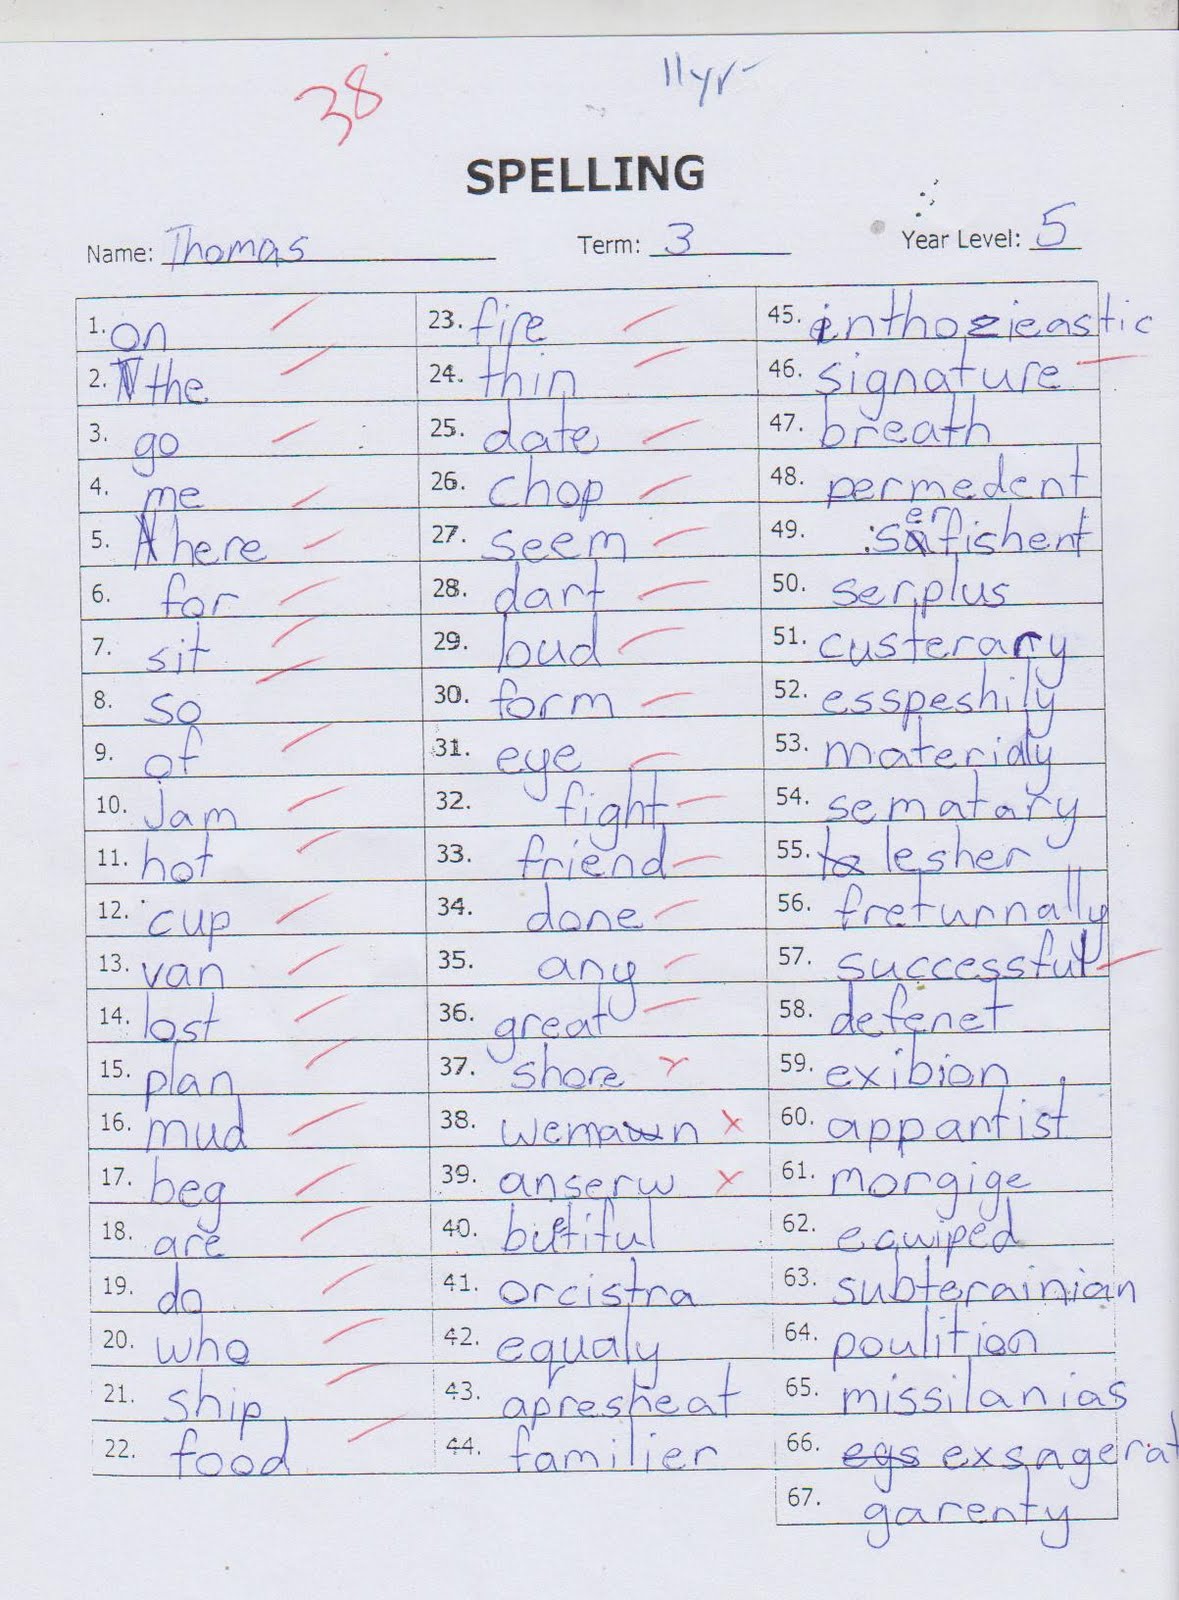 38
11yr-
SPELLING
Name: Thomas Term: 3 Year Level: 5
1. on
2. the
3. go
4. me
5. here
6. for
7. sit
8. so
9. of
10. jam
11. hot
12. cup
13. van
14. lost
15. plan
16. mud
17. beg
18. are
19. do
20. who
21. ship
22. food
23. fire
24. thin
25. date
26. chop
27. seem
28. dart
29. bud
30. form
31. eye
32. fight
33. friend
34. done
35. any
36. great
37. shore
38. wemawn
39. anserw
40. butiful
41. orcistra
42. equaly
43. apresheat
44. familier
45. inthozieastic
46. signature
47. breath
48. permedent
49. serfishent
50. serplus
51. custerary
52. esspeshily
53. materialy
54. sematary
55. lesher
56. freturnally
57. successful
58. defenet
59. exibion
60. appantist
61. morgige
62. equiped
63. subterainian
64. poulition
65. missilanias
66. egs exsagerat
67. garenty